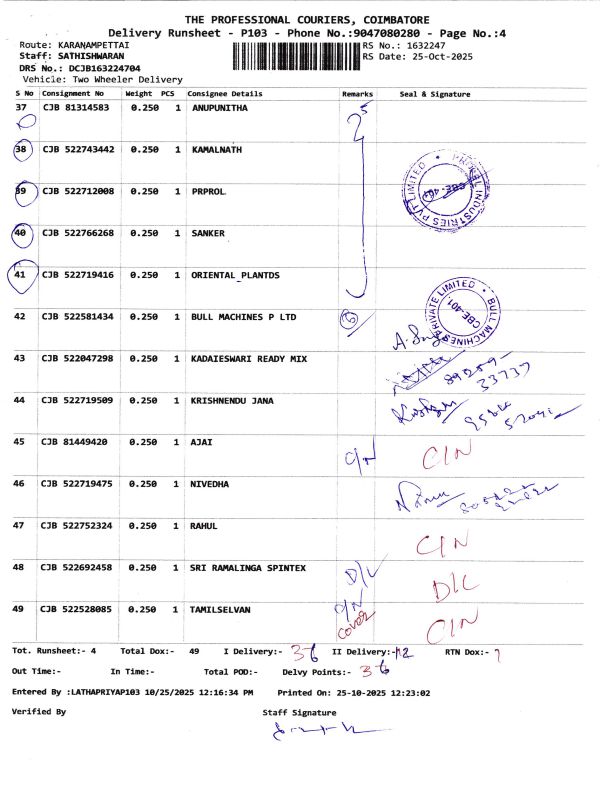 THE PROFESSIONAL COURIERS, COIMBATORE
Delivery Runsheet - P103 - Phone No.:9047080280 - Page No.:4
Route: KARANAMPETTAI RS No.: 1632247
Staff: SATHISHWARAN RS Date: 25-Oct-2025
DRS No.: DCJB163224704
Vehicle: Two Wheeler Delivery
S No Consignment No Weight PCS Consignee Details Remarks Seal & Signature
37 CJB 81314583 0.250 1 ANUPUNITHA
38 CJB 522743442 0.250 1 KAMALNATH
39 CJB 522712008 0.250 1 PRPROL
40 CJB 522766268 0.250 1 SANKER
41 CJB 522719416 0.250 1 ORIENTAL PLANTDS
42 CJB 522581434 0.250 1 BULL MACHINES P LTD
BULL MACHINES PRIVATE LIMITED
CBE-401
43 CJB 522047298 0.250 1 KADAIESWARI READY MIX
44 CJB 522719509 0.250 1 KRISHNENDU JANA
45 CJB 81449420 0.250 1 AJAI C/N C/N
46 CJB 522719475 0.250 1 NIVEDHA
47 CJB 522752324 0.250 1 RAHUL C/N
48 CJB 522692458 0.250 1 SRI RAMALINGA SPINTEX D/L D/L
49 CJB 522528085 0.250 1 TAMILSELVAN C/N cover C/N
Tot. Runsheet:- 4 Total Dox:- 49 I Delivery:- 36 II Delivery:-12 RTN Dox:- 1
Out Time:- In Time:- Total POD:- Delvy Points:- 36
Entered By :LATHAPRIYAP103 10/25/2025 12:16:34 PM Printed On: 25-10-2025 12:23:02
Verified By Staff Signature